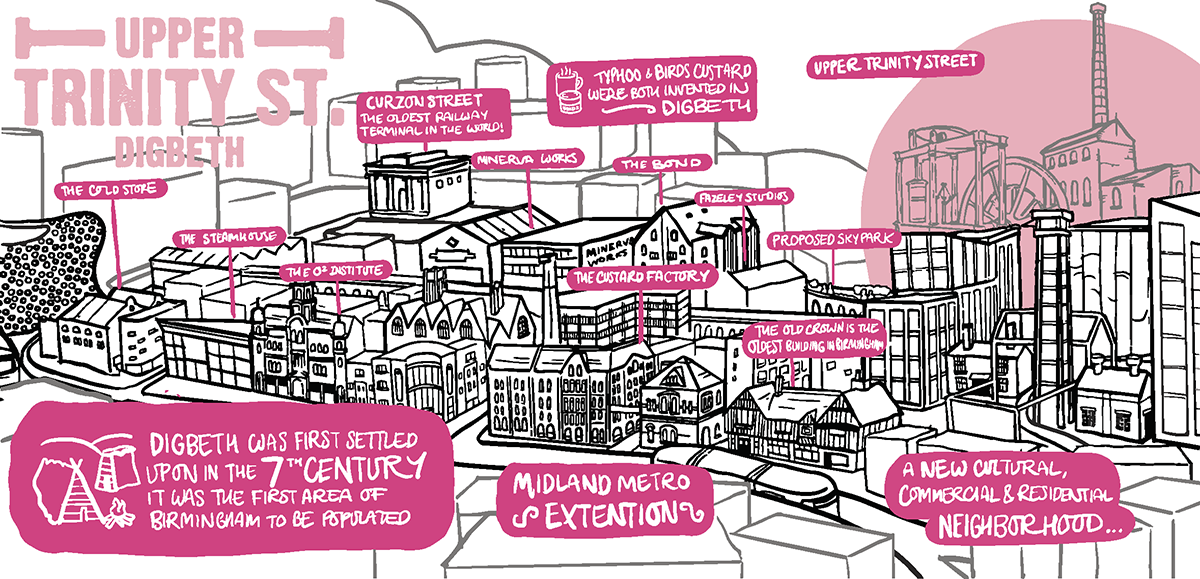 UPPER
TRINITY ST.
DIGBETH
CURZON STREET
THE OLDEST RAILWAY
TERMINAL IN THE WORLD!
TYPHOO & BIRDS CUSTARD
WERE BOTH INVENTED IN
DIGBETH
UPPER TRINITY STREET
THE COLD STORE
MINERVA WORKS
THE BOND
FAZELEY STUDIOS
THE STEAMHOUSE
PROPOSED SKY PARK
MINERVA
WORKS
THE O² INSTITUTE
THE CUSTARD FACTORY
THE OLD CROWN IS THE
OLDEST BUILDING IN BIRMINGHAM
DIGBETH WAS FIRST SETTLED
UPON IN THE 7TH CENTURY
IT WAS THE FIRST AREA OF
BIRMINGHAM TO BE POPULATED
MIDLAND METRO
EXTENTION
A NEW CULTURAL,
COMMERCIAL & RESIDENTIAL
NEIGHBORHOOD...